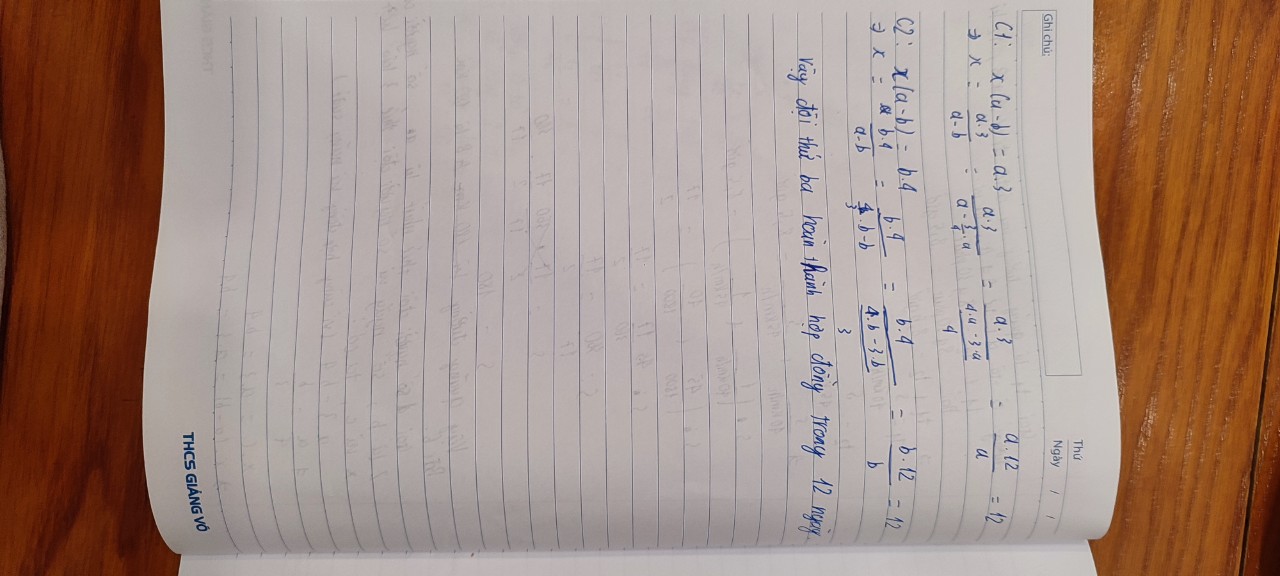 Thứ
Ngày / /
Ghi chú:
C1: x(a-b) = a.3
⇒ x = a.3/a-b = a.3/a - 3/4.a = a.3/4.a - 3.a/4 = a.12/a = 12
C2: x(a-b) = b.4
⇒ x = b.4/a-b = b.4/4/3.b-b = b.4/4.b-3.b/3 = b.12/b = 12
Vậy đội thứ ba hoàn thành hợp đồng trong 12 ngày.
THCS GIẢNG VÕ